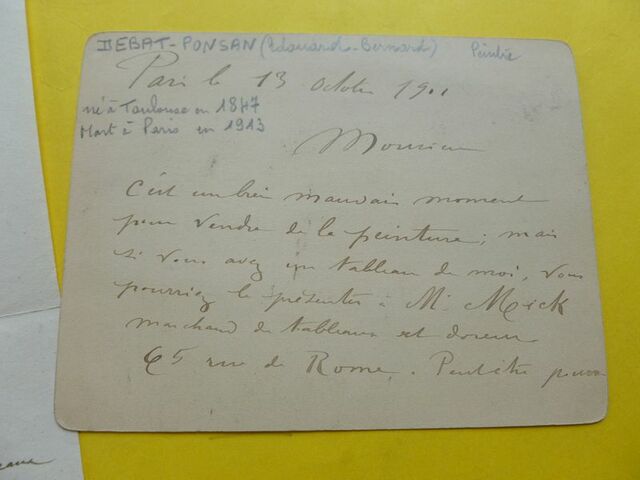 DEBAT-PONSAN (Edouard-Bernard) Peintre
Paris le 13 octobre 1901
né à Toulouse en 1847
Mort à Paris en 1913
Monsieur
C'est un bien mauvais moment
pour vendre de la peinture; mais
si vous avez un tableau de moi, vous
pourriez le présenter à Mr Meick
marchand de tableaux et doreur
65 rue de Rome. Peut être